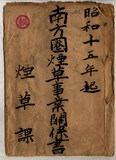 昭和十五年起
南方圏煙草事業關係書
煙草課